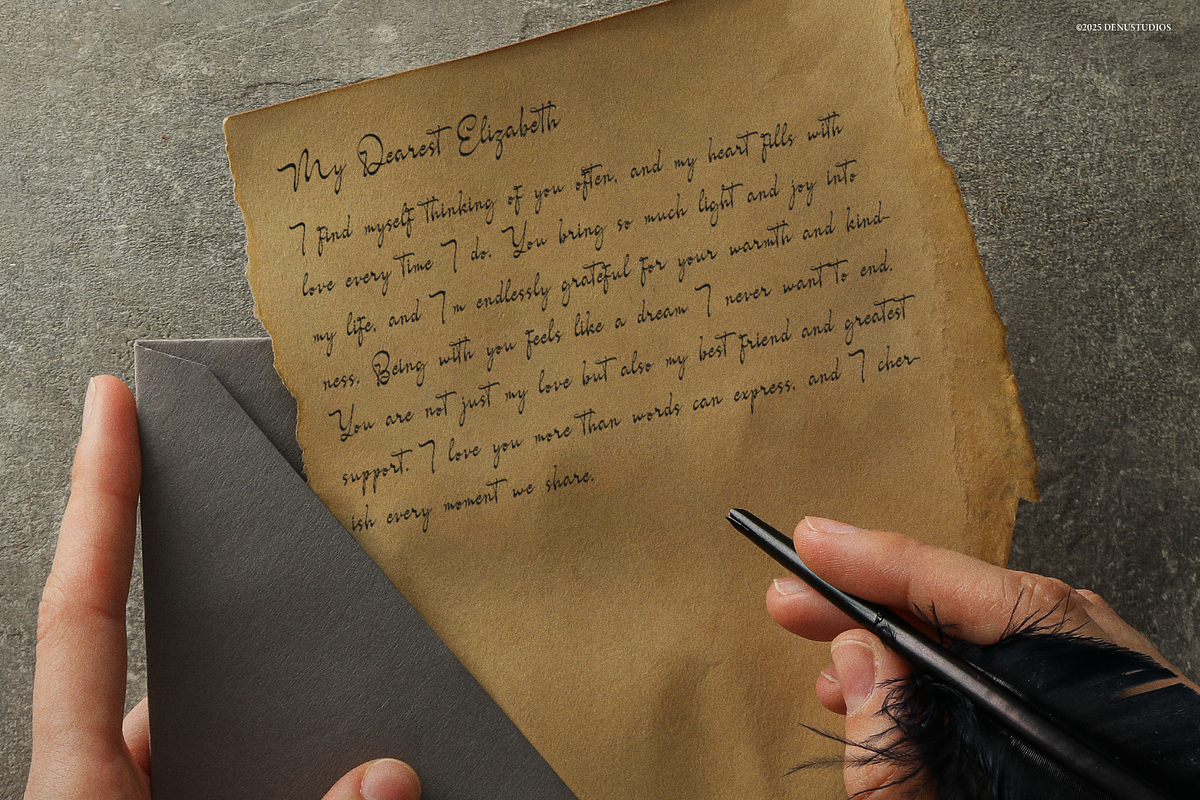 ©2025 DENUSTUDIOS
My Dearest Elizabeth
I find myself thinking of you often, and my heart fills with
love every time I do. You bring so much light and joy into
my life, and I'm endlessly grateful for your warmth and kind-
ness. Being with you feels like a dream I never want to end.
You are not just my love but also my best friend and greatest
support. I love you more than words can express, and I cher-
ish every moment we share.